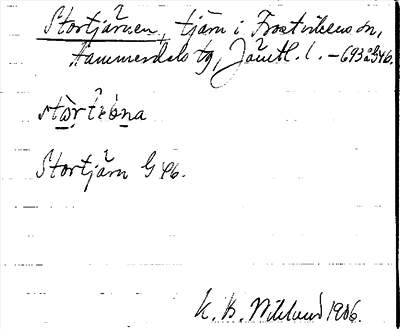 Stortjärnen, tjärn i Frostvikens sn,
Hammerdals tg, Jämtl. l. – 693 å G46.
Stortjärn G 46.
K. B. Wiklund 1906.